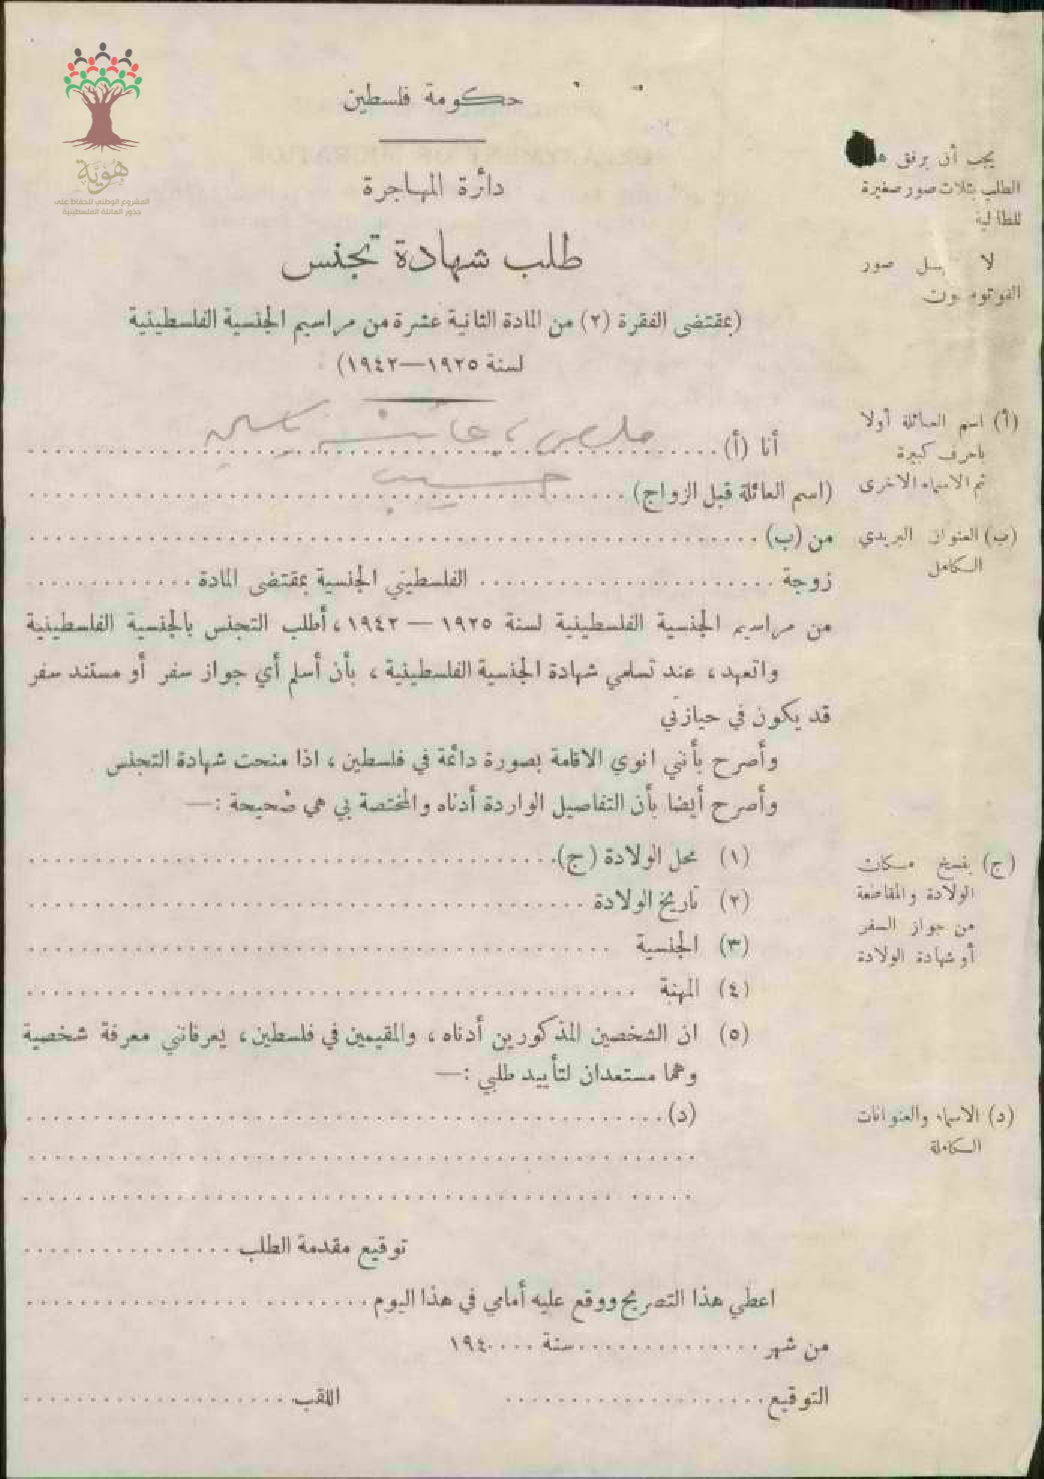 هُوِيَّة
المشروع الوطني للحفاظ على
جذور العائلة الفلسطينية
حكومة فلسطين
دائرة المهاجرة
طلب شهادة تجنس
(بمقتضى الفقرة (٢) من المادة الثانية عشرة من مراسيم الجنسية الفلسطينية
لسنة ١٩٢٥—١٩٤٢)
يجب أن يرفق
الطلب بثلاث صور صغيرة
للطالبة
لا صور
(أ) اسم العائلة أولا
باحرف كبيرة
ثم الاسماء الاخرى
أنا (أ) ملحس، عائشة ياسين
(اسم العائلة قبل الزواج) حسيب
(ب) العنوان البريدي
الكامل
من (ب)
زوجة الفلسطيني الجنسية بمقتضى المادة
من مراسيم الجنسية الفلسطينية لسنة ١٩٢٥ — ١٩٤٢، أطلب التجنس بالجنسية الفلسطينية
واتعهد، عند تسلمي شهادة الجنسية الفلسطينية، بأن أسلم أي جواز سفر أو مستند سفر
قد يكون في حيازتي
وأصرح بأنني انوي الاقامة بصورة دائمة في فلسطين، اذا منحت شهادة التجنس
وأصرح أيضا بأن التفاصيل الواردة أدناه والمختصة بي هي صحيحة :—
(ج) مكان
الولادة والمقاطعة
من جواز السفر
أو شهادة الولادة
(١) محل الولادة (ج)
(٢) تاريخ الولادة
(٣) الجنسية
(٤) المهنة
(٥) ان الشخصين المذكورين أدناه، والمقيمين في فلسطين، يعرفانني معرفة شخصية
وهما مستعدان لتأييد طلبي :—
(د) الاسماء والعنوانات
الكاملة
(د)
توقيع مقدمة الطلب
اعطي هذا التصريح ووقع عليه أمامي في هذا اليوم
من شهر سنة ١٩٤٠
التوقيع اللقب